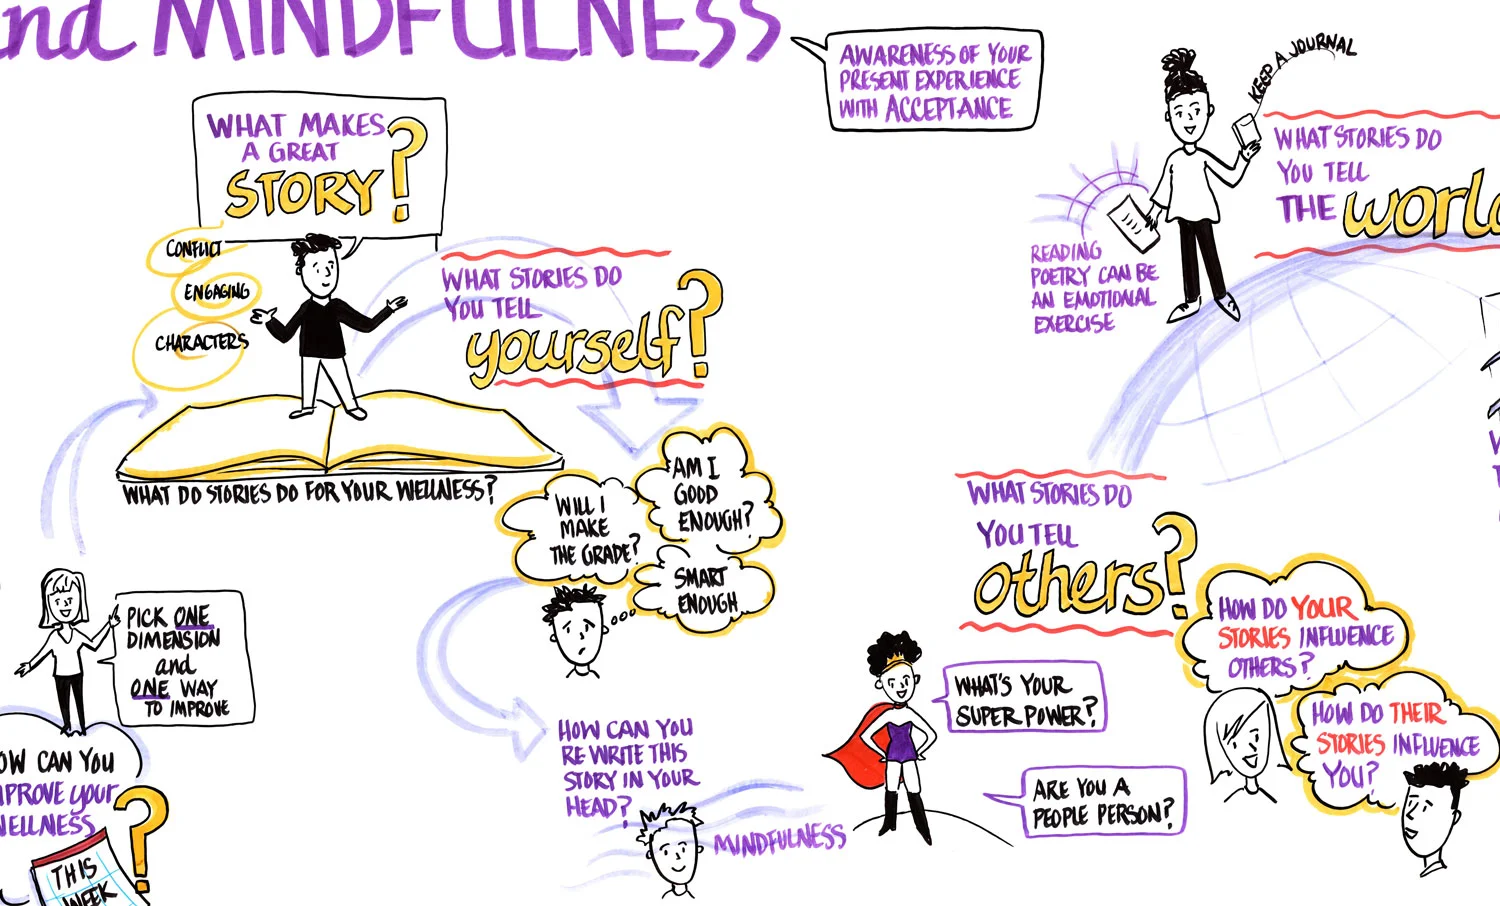 and MINDFULNESS
AWARENESS OF YOUR
PRESENT EXPERIENCE
WITH ACCEPTANCE
WHAT MAKES
A GREAT
STORY?
CONFLICT
ENGAGING
CHARACTERS
WHAT DO STORIES DO FOR YOUR WELLNESS?
WHAT STORIES DO
YOU TELL
yourself?
WILL I
MAKE
THE GRADE?
AM I
GOOD
ENOUGH?
SMART
ENOUGH
PICK ONE
DIMENSION
and
ONE WAY
TO IMPROVE
OW CAN YOU
MPROVE your
WELLNESS
?
THIS
WEEK
HOW CAN YOU
RE WRITE THIS
STORY IN YOUR
HEAD?
MINDFULNESS
KEEP A JOURNAL
READING
POETRY CAN BE
AN EMOTIONAL
EXERCISE
WHAT STORIES DO
YOU TELL
THE worl
WHAT STORIES DO
YOU TELL
others?
WHAT'S YOUR
SUPER POWER?
ARE YOU A
PEOPLE PERSON?
HOW DO YOUR
STORIES INFLUENCE
OTHERS?
HOW DO THEIR
STORIES INFLUENCE
YOU?